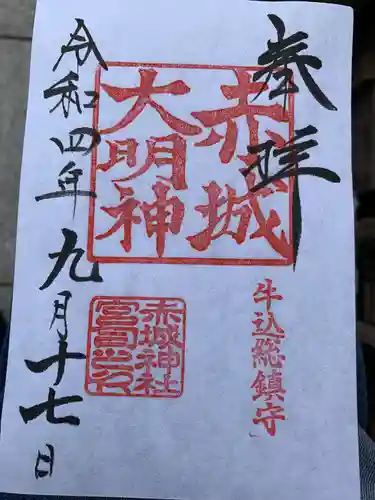 奉拝
赤城
大明神
牛込総鎮守
赤城神社
宮司之印
令和四年九月十七日